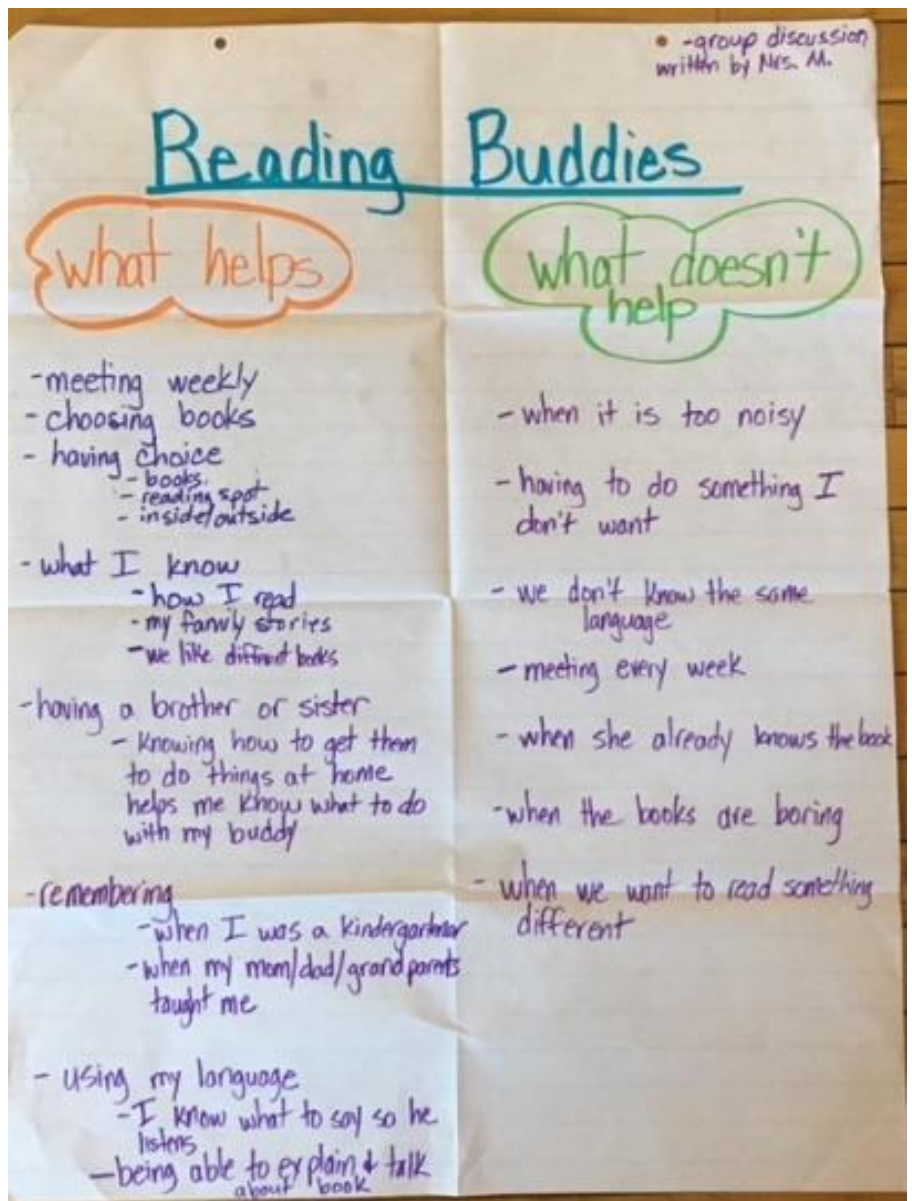 -group discussion
written by Mrs. M.
Reading Buddies
what helps
-meeting weekly
-choosing books
-having choice
-books.
-reading spot
-inside/outside
-what I know
-how I read
-my family stories
-we like different books
-having a brother or sister
-Knowing how to get them
to do things at home
helps me know what to do
with my buddy
-remembering
-when I was a kindergartner
-when my mom/dad/grandparents
taught me
-using my language
-I know what to say so he
listens
-being able to explain & talk
about book
what doesn't
help
-when it is too noisy
-having to do something I
don't want
-we don't know the same
language
-meeting every week
-when she already knows the book
-when the books are boring
-when we want to read something
different